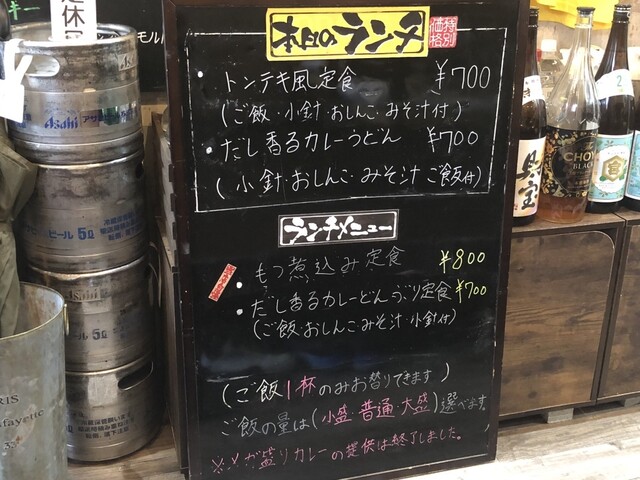 本日のランチ 特別価格
・トンテキ風定食 ¥700
(ご飯・小針・おしんこ・みそ汁付)
・だし香るカレーうどん ¥700
(小針・おしんこ・みそ汁 ご飯付)
ランチメニュー
・もつ煮込み定食 ¥800
・だし香るカレーどんぶり定食 ¥700
(ご飯・おしんこ・みそ汁・小針付)
(ご飯1杯のみお替りできます)
ご飯の量は(小盛・普通・大盛)選べます。
※メガ盛りカレーの提供は終了しました。
定休
Asahi
Asahi アサヒ
ビール 5ℓ
Asahi
ビール 5ℓ
RIS
fayette
33
CHOYA
BLACK